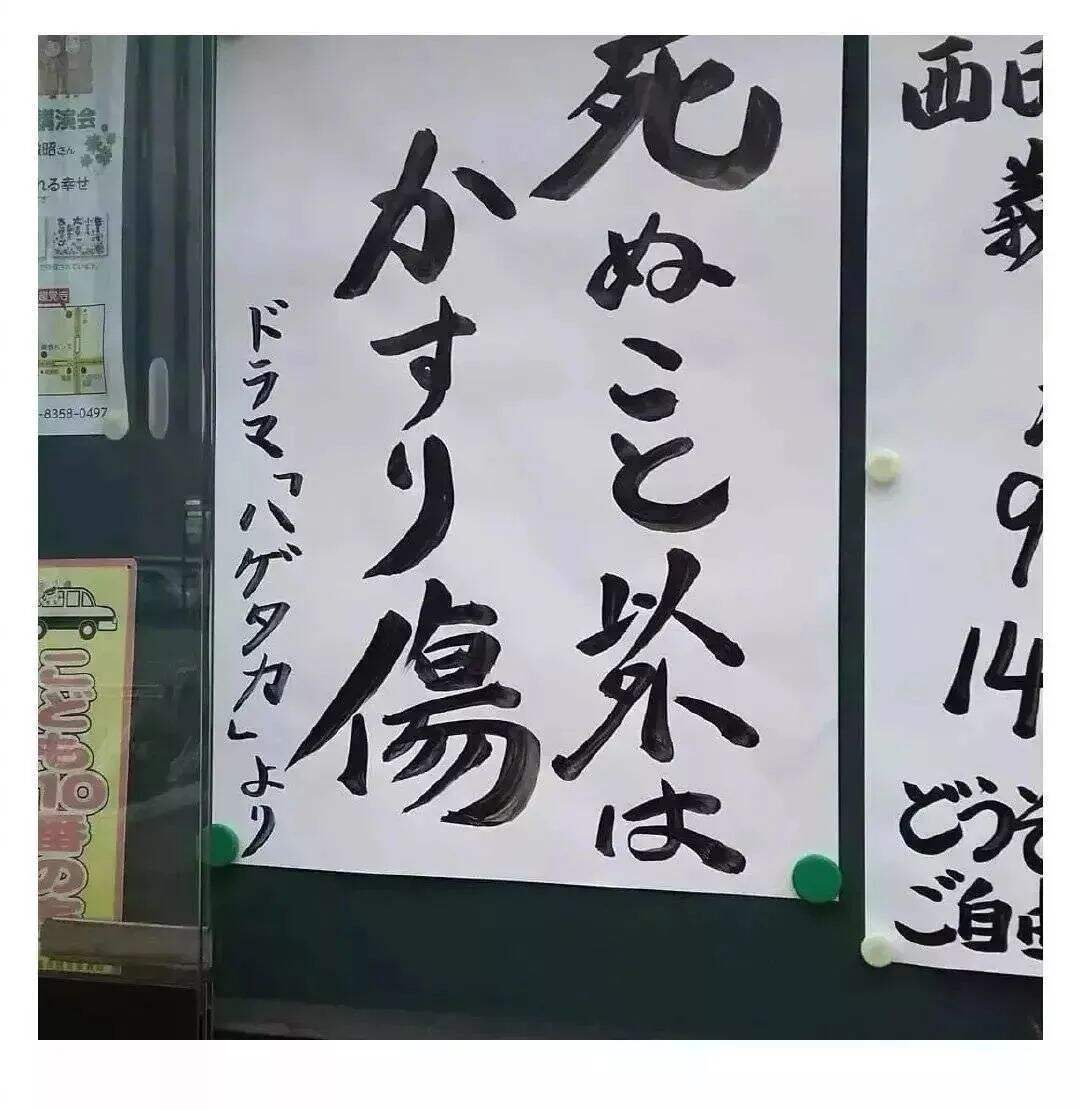 死ぬこと以外は
かすり傷
ドラマ「ハゲタカ」より
西
義
9
14
どうぞ
ご自由
講演会
昭さん
れる幸せ
-8358-0497
こども10番の